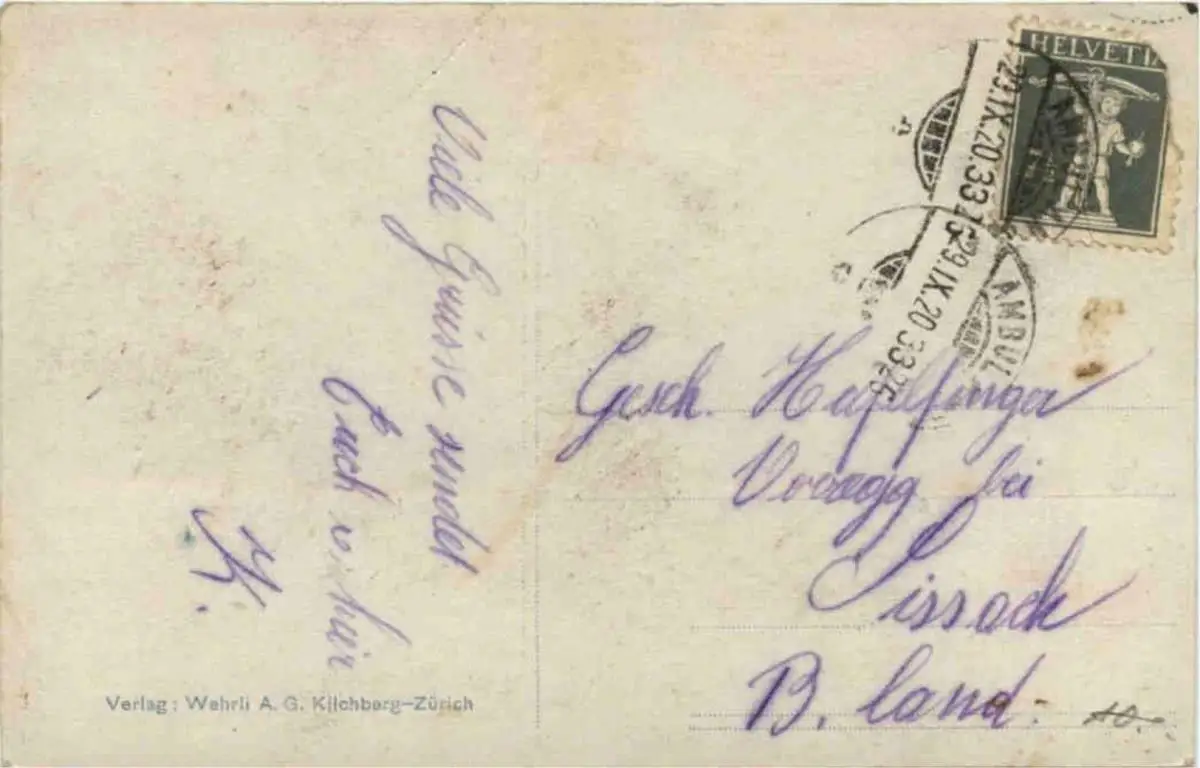 Viele Grüsse sendet
Euch v. hier
K.
Verlag: Wehrli A. G. Kilchberg-Zürich
HELVETIA
29.IX.20.33
29.IX.20.33
AMBUL
Gesch. Hafelfinger
bei
Sissach
B. land.
10.-